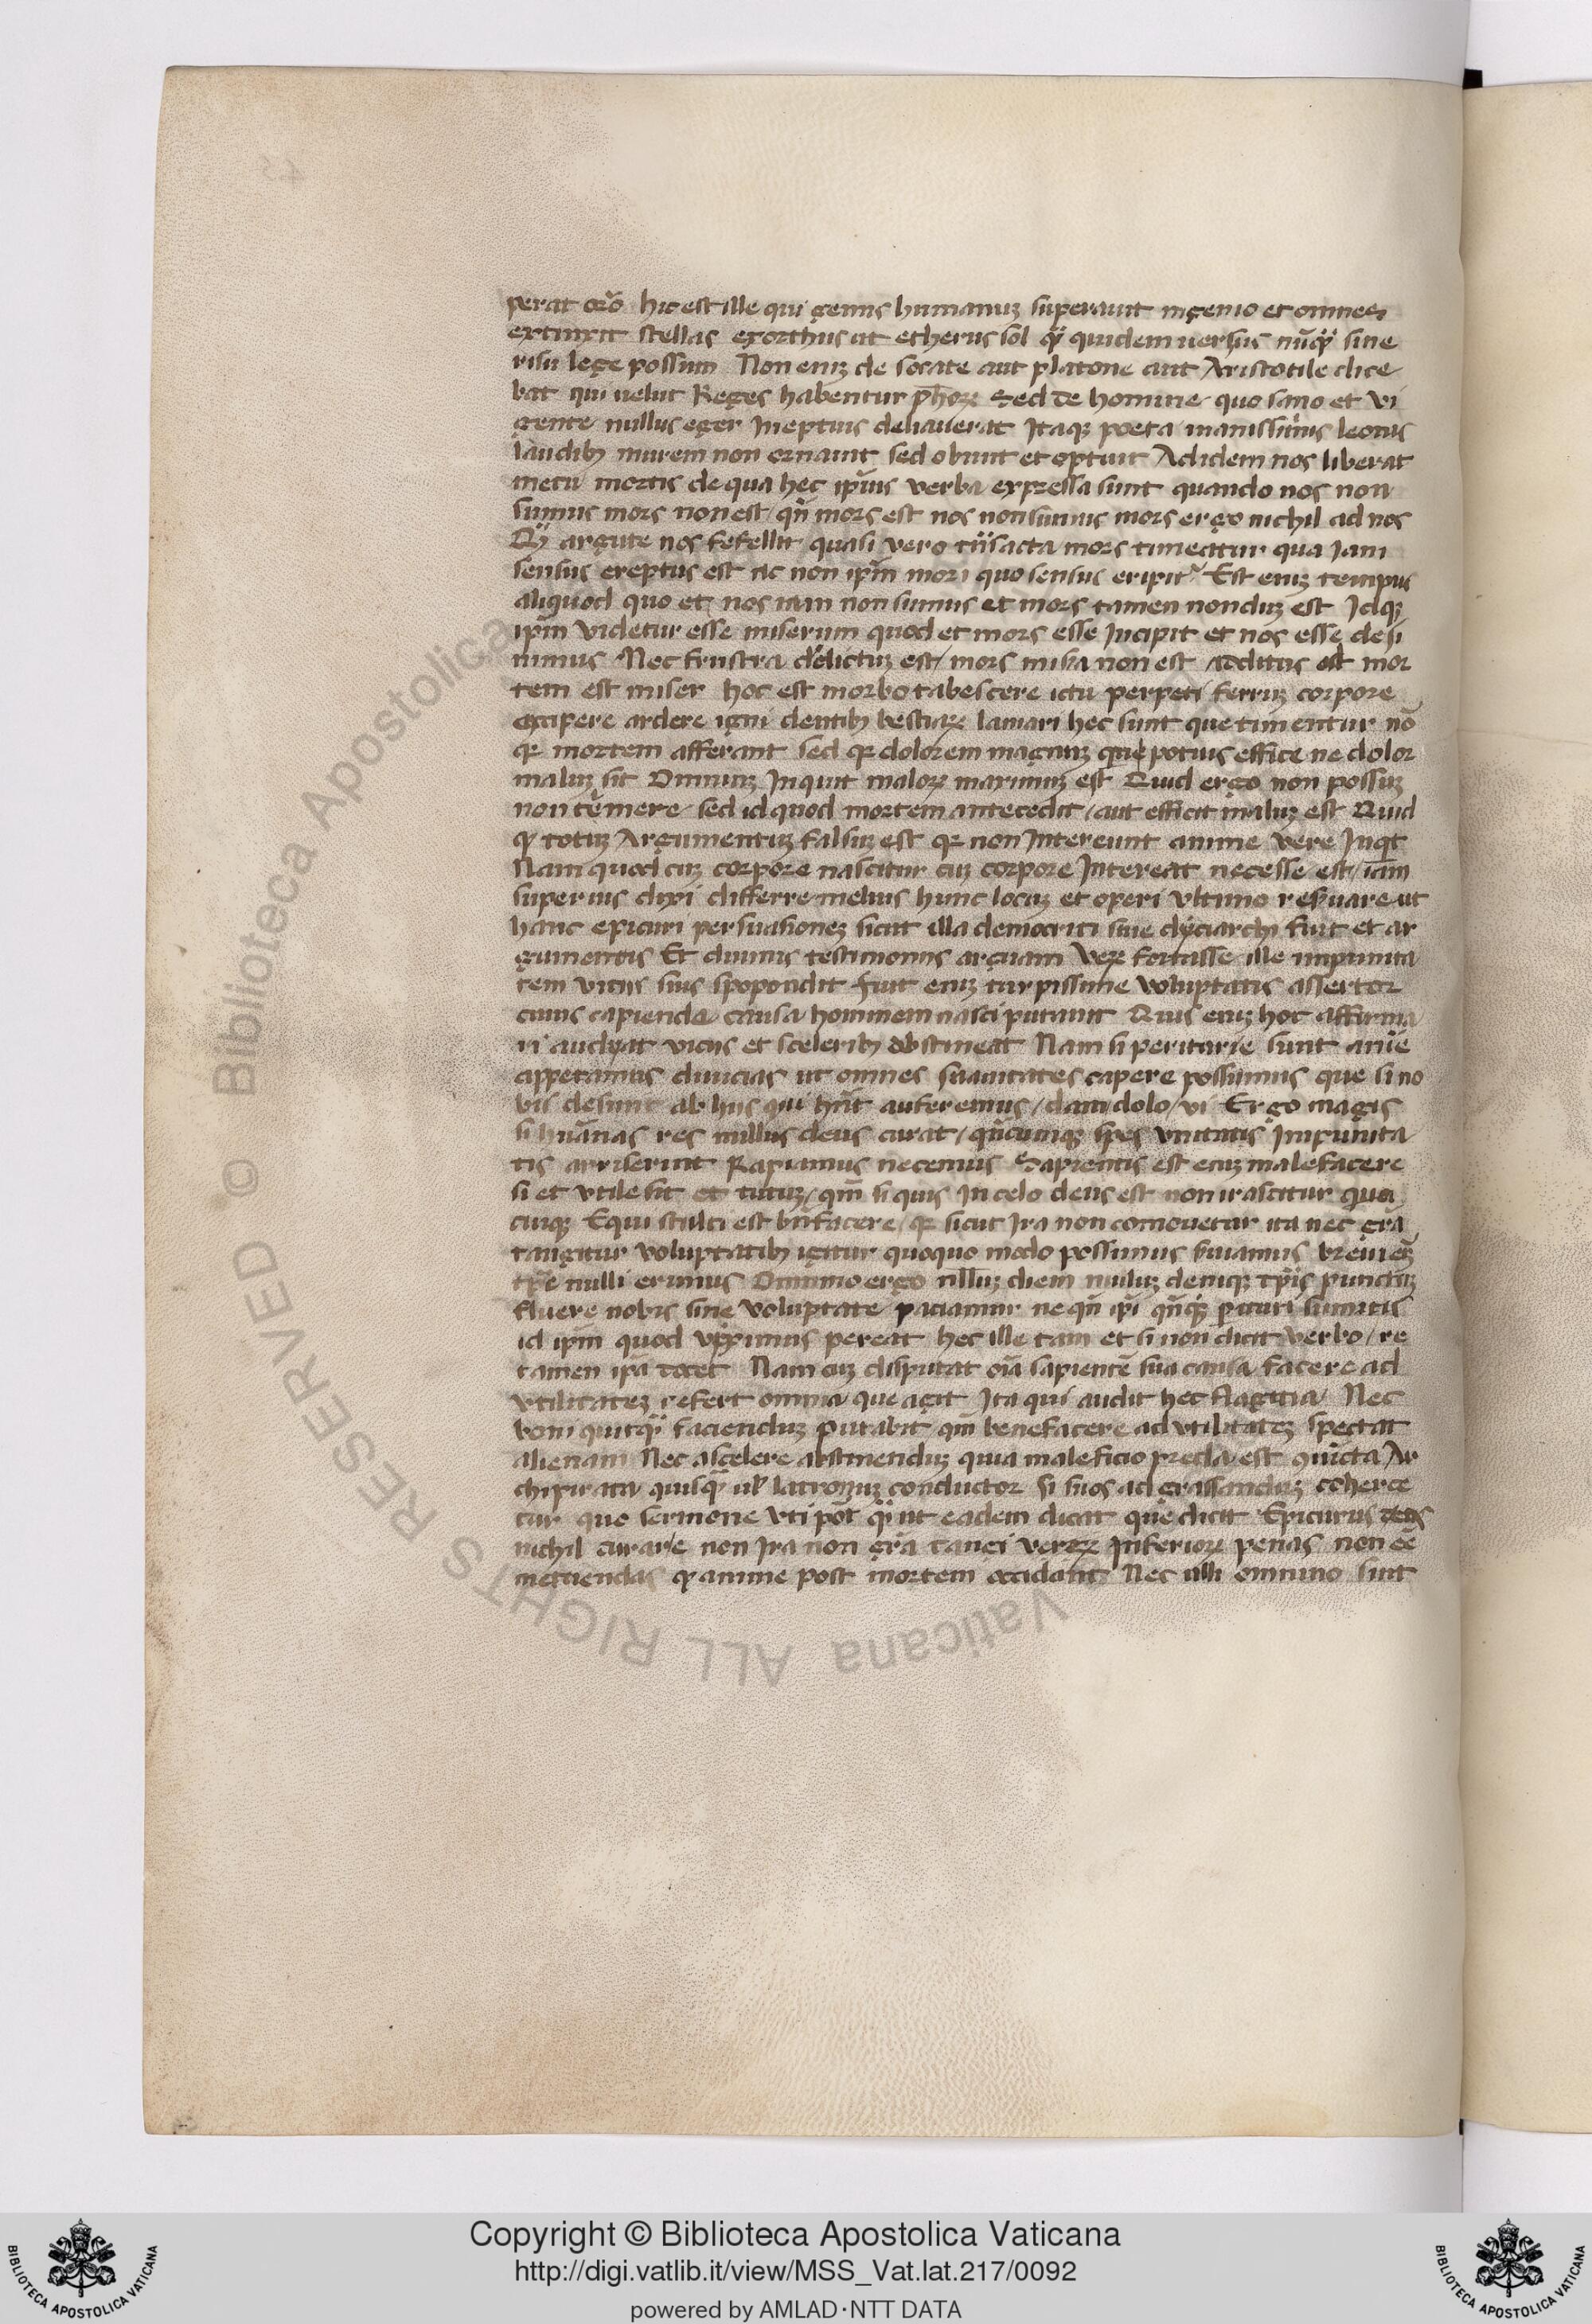 perat oro᷑ hic est ille qui genus humanuꝫ superauit ingenio et omnes
extinxit stellas exorthus ut etherus sol qᷓ quidem uersus nu̅qᷓ sine
risu lege possum Non eniꝫ de socate aut platone aut Aristotile dice
bat qui uelut Reges habentur ph̅oꝝ Sed de homine quo sano et vi
gente nullus eger Ineptius deliauerat Itaqꝫ poeta inanissimus leonis
laudibꝫ murem non ornauit sed obruit et optriuit Ad idem nos liberat
metu mortis de qua hec ip̅ius verba expressa sunt quando nos non
sumus mors non est / qn̅ mors est nos non sumus mors ergo nichil ad nos
Qᷓ argute nos fefellit quasi vero tn̅sacta mors timeatur qua Iam
sensus ereptus est ac non ip̅m mori quo sensus eripitᷣ Est eniꝫ tempus
aliquod quo et nos iam non sumus et mors tamen nonduꝫ est Idqꝫ
ip̅m videtur esse miserum quod et mors esse Incipit et nos esse desi
nimus Nec frustra dictuꝫ est / mors miẜa non est aditus ad mor
tem est miser hoc est morbo tabescere ictu perpeti ferruꝫ corpore
excipere ardere igni dentibꝫ bestiaꝝ laniari hec sunt que timentur no̅
qꝛ mortem afferant sed qꝛ dolorem magnuꝫ quin potius effice ne dolor
maluꝫ sit Omniuꝫ Inquit maloꝝ maximuꝫ est Quid ergo non possuꝫ
non temere sed id quod mortem antecedit / aut efficit maluꝫ est Quid
ꝙ totuꝫ Argumentuꝫ falsuꝫ est qꝛ non Intereunt anime Vere Inqͥt
Nam quod cuꝫ corpore nascitur cuꝫ corpore Intereat necesse est / iam
superius dixi differre melius hunc locuꝫ et operi vltimo reẜuare ut
hanc epicuri persuasioneꝫ sicut illa democriti siue dyciarchi fuit et ar
gumentis Et diuinis testimoniis arguam Veꝝ fortasse ille impunita
tem viciis suis spopondit fuit eniꝫ turpissime voluptatis assertor
cuius capiende causa hominem nasci putauit Quis eniꝫ hoc affirma
ri audyat viciis et sceleribꝫ abstineat Nam si periturie sunt anie̅
appetamus diuicias ut omnes suauitates capere possumus que si no
bis desunt ab hiis qui hn̅t auferemus / clam / dolo / vi Ergo magis
si hu̅anas res nullus deus curat / qn̅cumqꝫ spes Impunita
tis arriserint Rapiamus necemus Sapientis est eniꝫ malefacere
si et vtile sit et tutuꝫ / qm̅ si quis In celo deus est non irascitur qua
cuiqꝫ Equi stulti est bn̅facere / qꝛ sicut Ira non comouetur ita nec gr̅a
tangitur voluptatibꝫ igitur quoquo modo possimus ẜuiamus breui eꝫ
tp̅e nulli erimus Omnino ergo nll̅uꝫ diem nulluꝫ deniqꝫ tp̅is punctuꝫ
fluere nobis sine voluptate paciamur ne qn̅ ip̅i qn̅qꝫ perituri sumus
id ip̅m quod viximus pereat hec ille tam et si non dicit verbo / re
tamen ip̅a docet Nam cuꝫ disputat oi̅a sapiente̅ sua causa facere ad
vtilitateꝫ refert omnia que agit Ita qui audit hec flagitia Nec
boni quitqᷓ facienduꝫ putabit qm̅ benefacere ad vtilitateꝫ spectat
alienam Nec a scelere abstinenduꝫ quia maleficio preda est Ar
chipirata quisqᷓ ul̕ latronuꝫ conductor si suos ad grassanduꝫ coherce
tur quo sermone vti pot̅ qᷓ ut eadem dicat que dicit Epicurus deos
nichil curare non Ira non gr̅a tangi Inferioꝝ penas non ee̅
metuendas ꝙ anime post mortem occidant Nec ulli omnino sint
Copyright © Biblioteca Apostolica Vaticana
http://digi.vatlib.it/view/MSS_Vat.lat.217/0092
powered by AMLAD·NTT DATA
BIBLIOTECA APOSTOLICA VATICANA
BIBLIOTECA APOSTOLICA VATICANA
© Biblioteca Apostolica Vaticana ALL RIGHTS RESERVED